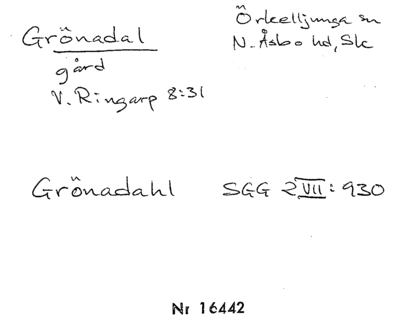 Grönadal
gård
V. Ringarp 8:31
Örkelljunga sn
N. Åsbo hd, Sk
Grönadahl SGG 2 VII: 930
Nr 16442